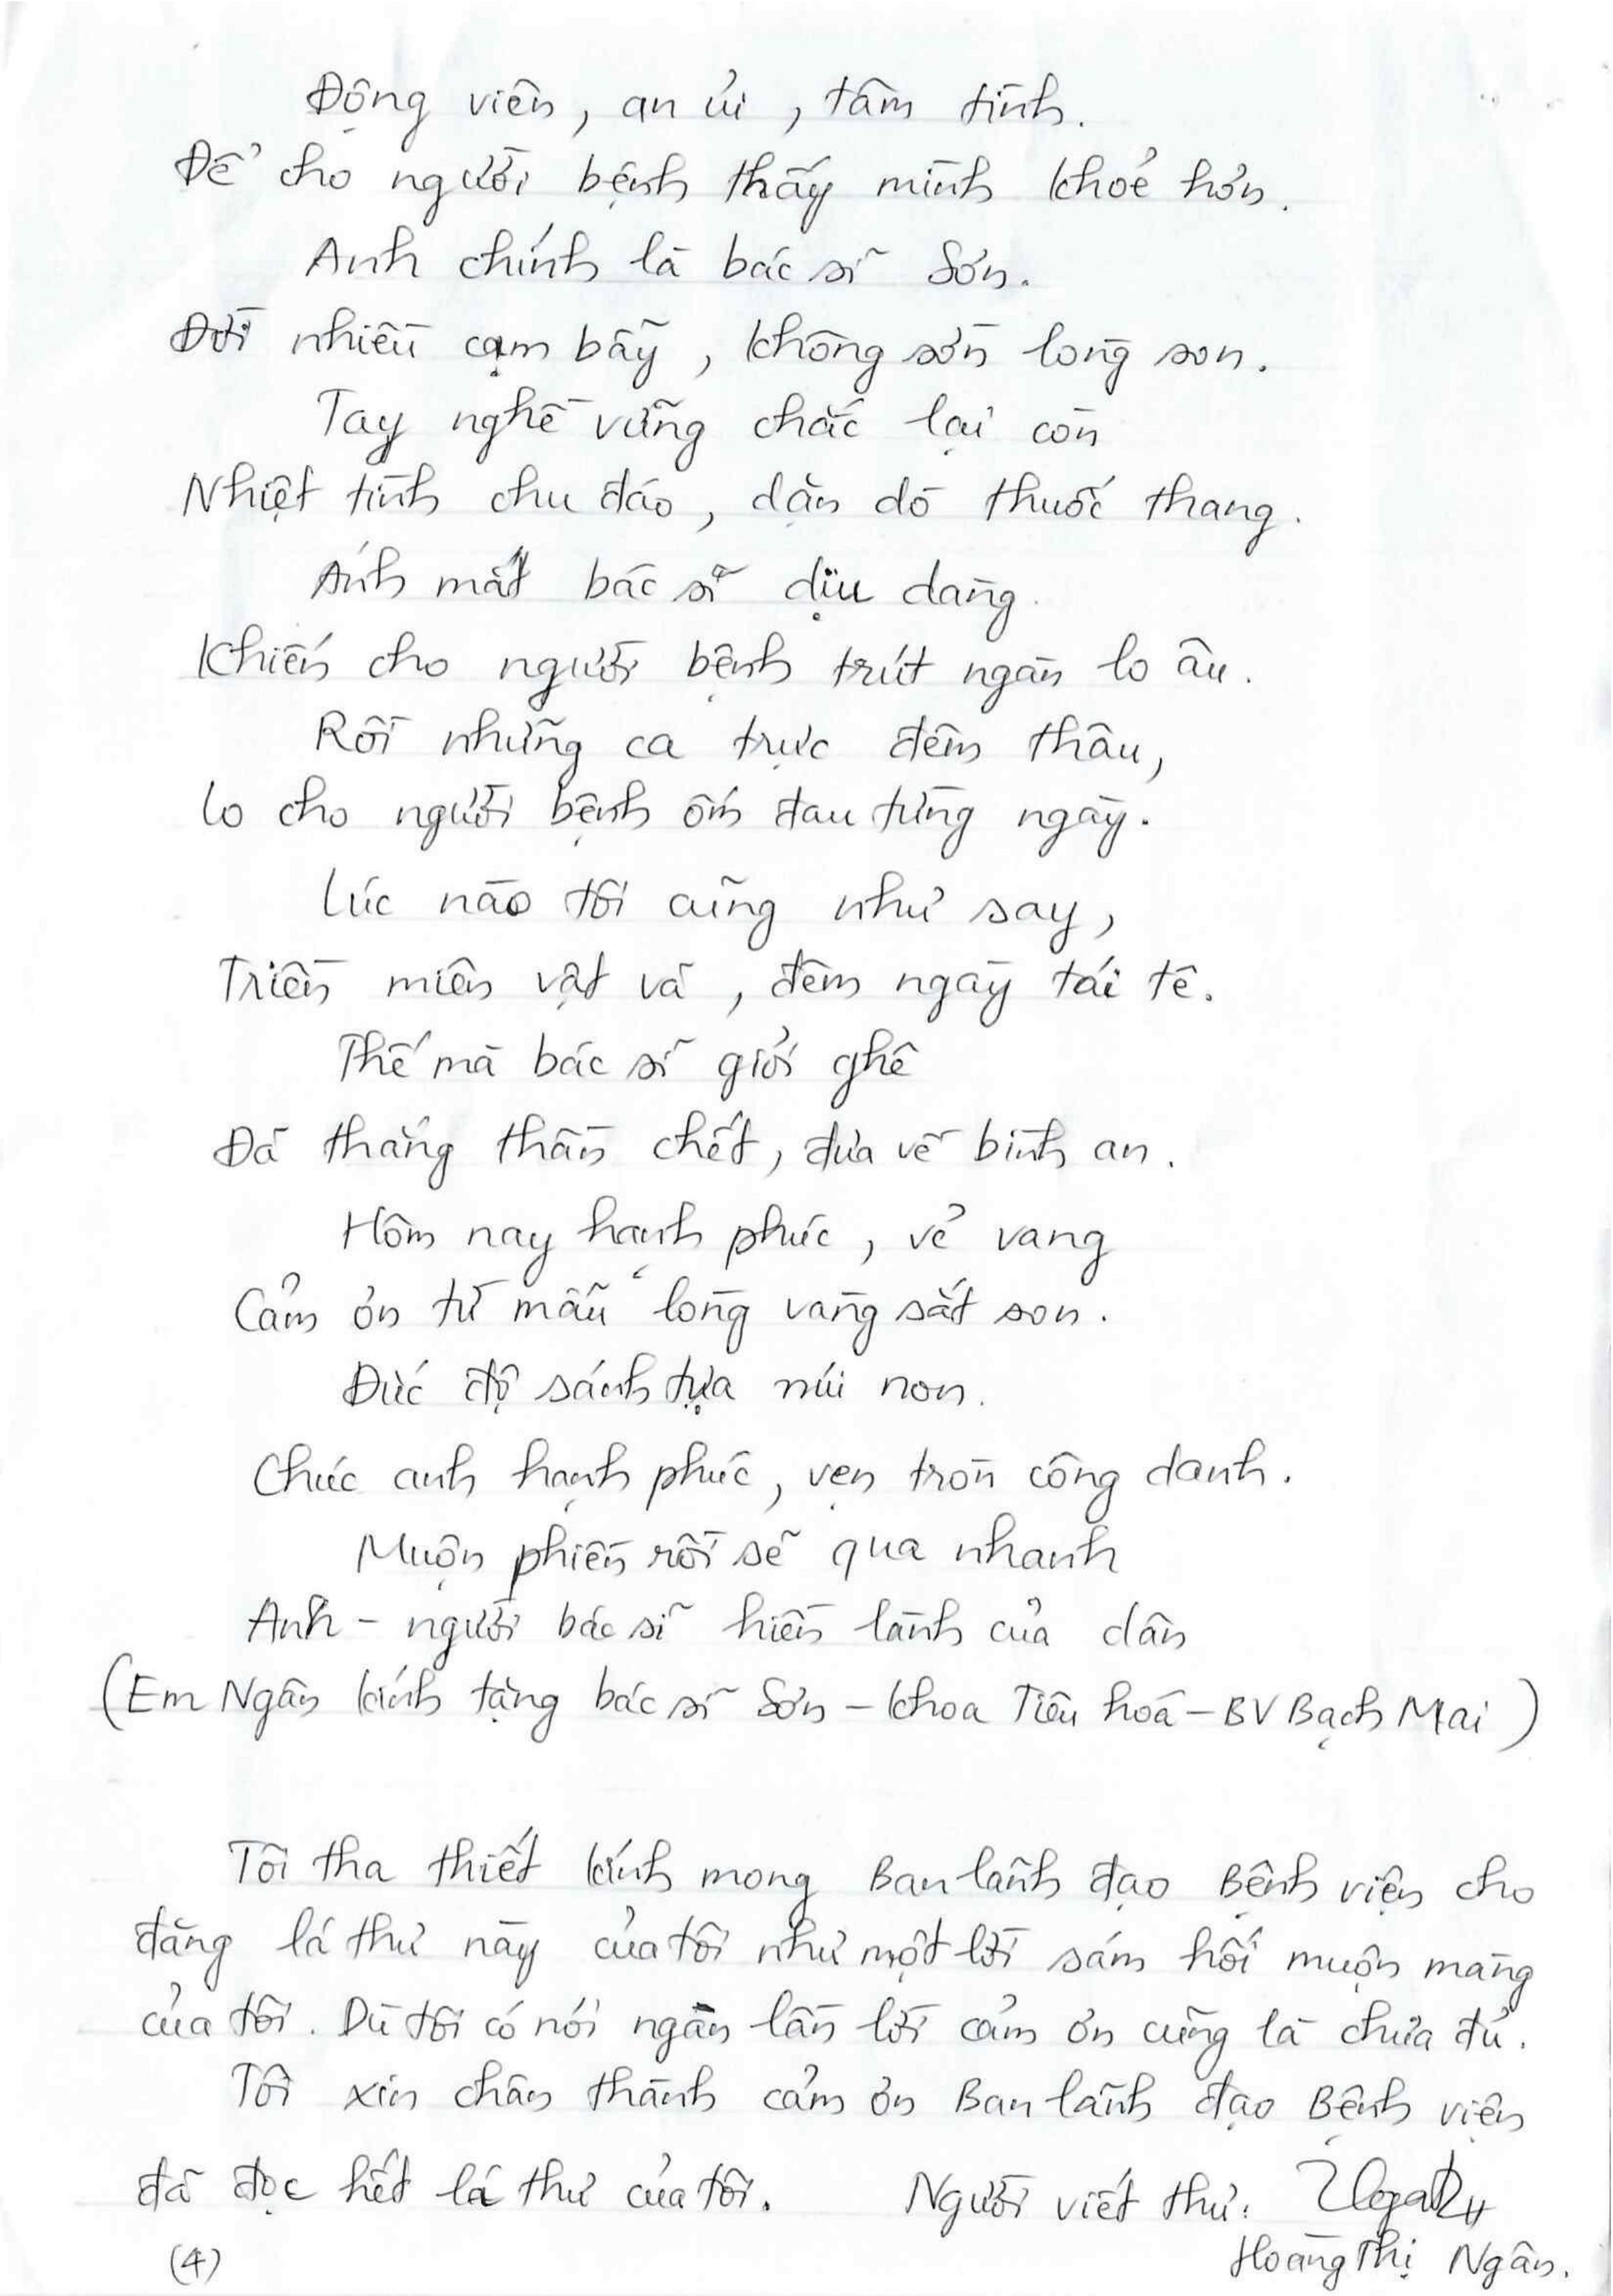 Động viên, an ủi, tâm tình.
Để cho người bệnh thấy mình khoẻ hơn.
Anh chính là bác sĩ Sơn.
Đời nhiều cạm bẫy, không sờn lòng son.
Tay nghề vững chắc lại còn
Nhiệt tình chu đáo, dặn dò thuốc thang.
Ánh mắt bác sĩ dịu dàng.
Khiến cho người bệnh trút ngàn lo âu.
Rồi những ca trực đêm thâu,
lo cho người bệnh ốm đau từng ngày.
Lúc nào tôi cũng như say,
Triền miên vật vã, đêm ngày tái tê.
Thế mà bác sĩ giỏi ghê
Đã thắng thần chết, đưa về bình an.
Hôm nay hạnh phúc, vẻ vang
Cảm ơn từ mẫu lòng vàng sắt son.
Đức độ sánh tựa núi non.
Chúc anh hạnh phúc, vẹn tròn công danh.
Muộn phiền rồi sẽ qua nhanh
Anh - người bác sĩ hiền lành của dân
(Em Ngân kính tặng bác sĩ Sơn - khoa Tiêu hoá - BV Bạch Mai)
Tôi tha thiết kính mong Ban lãnh đạo Bệnh viện cho
đăng lá thư này của tôi như một lời sám hối muộn màng
của tôi. Dù tôi có nói ngàn lần lời cảm ơn cũng là chưa đủ.
Tôi xin chân thành cảm ơn Ban lãnh đạo Bệnh viện
đã đọc hết lá thư của tôi. Người viết thư:
Hoàng Thị Ngân.
(4)